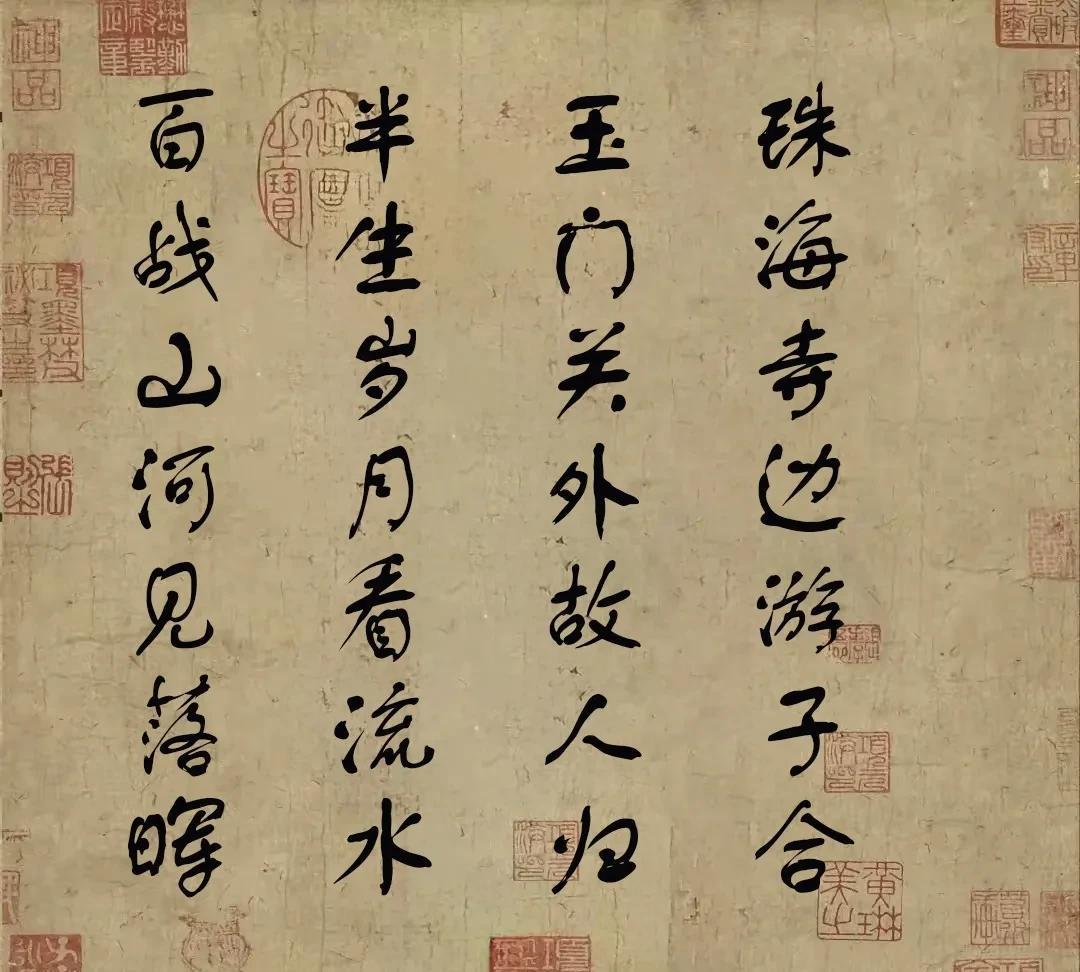 神品
珠海寺边游子合
玉门关外故人归
半生岁月看流水
百战山河见落晖
神品